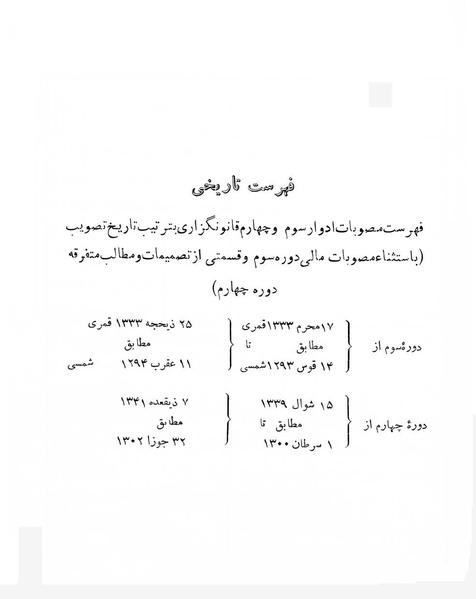 فهرست تاریخی
فهرست مصوبات ادوار سوم و چهارم قانونگزاری بترتیب تاریخ تصویب
(باستثناء مصوبات مالی دوره سوم و قسمتی از تصمیمات و مطالب متفرقه
دوره چهارم)
۱۷ محرم ۱۳۳۳ قمری ۲۵ ذیحجه ۱۳۳۳ قمری
دورهٔ سوم از مطابق تا مطابق
۱۴ قوس ۱۲۹۳ شمسی ۱۱ عقرب ۱۲۹۴ شمسی
۱۵ شوال ۱۳۳۹ ۷ ذیقعده ۱۳۴۱
دورهٔ چهارم از مطابق تا مطابق
۱ سرطان ۱۳۰۰ ۳۲ جوزا ۱۳۰۲